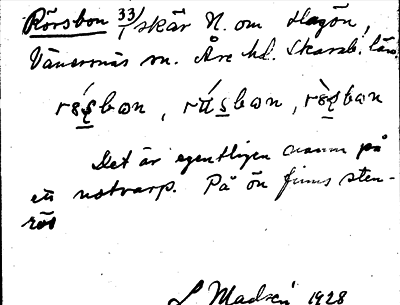 Rörsbon 33/1 skär N. om Hagön,
Vänersnäs sn. Åse hd. Skarab. län.
rǿs̲bɷn, rú́s̲bɷn, rø̀s̲bɷn
Det är egentligen namn på
ett notvarp. På ön finns sten-
rös
L Madsén 1928